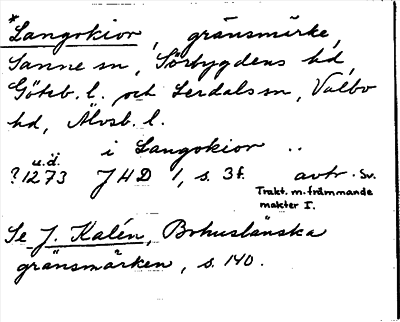 *Langokior, gränsmärke,
Sanne sn, Sörbygdens hd,
Göteb. l. och Lerdals sn, Valbo
hd, Älvsb. l.
i Langokior ..
u.d.
?1273 JHD 1, s. 3f. avtr. Sv.
Trakt. m. främmande
makter I.
Se J. Kalén, Bohuslänska
gränsmärken, s. 140.